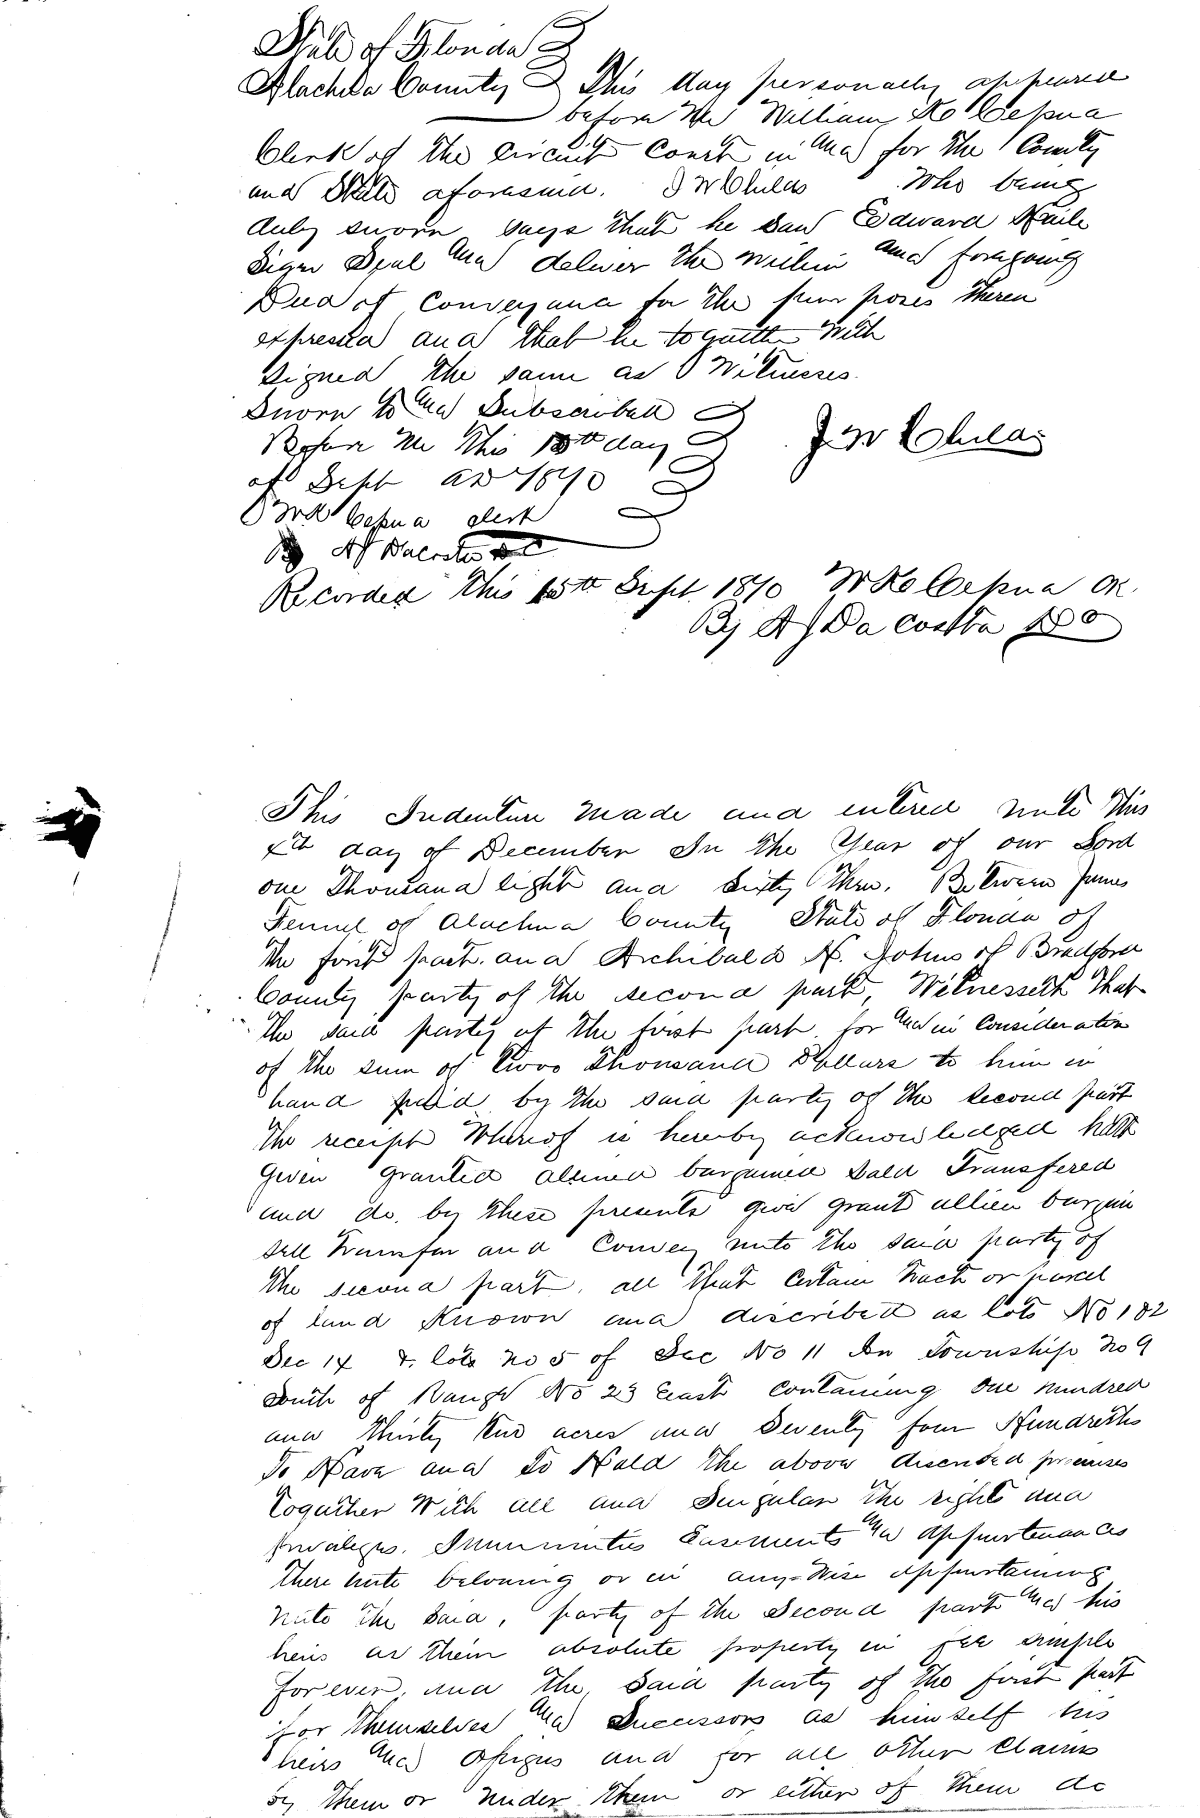 State of Florida
Alachua County This day personally appeared
before Me William K Cessna
Clerk of the Circuit Court in and for the County
and State aforesaid. J W Childs Who being
duly sworn says that he saw Edward Haile
Sign Seal and deliver the within and foregoing
Deed of Conveyance for the purposes therein
expressed and that he togeather With
signed the same as Witnesses.
Sworn to and Subscribed
Before Me this 15th day
of Sept AD 1870
J W Childs
W K Cessna Clerk
By A J Dacosta D C
Recorded this 15th Sept 1870 W K Cessna Clk.
By A J Da costa D C
This Indenture Made and entered unto this
4th day of December In the Year of our Lord
one Thousand eight and Sixty Three. Between James
Fennel of Alachua County State of Florida of
the first part. and Archibald N. Johns of Bradford
County party of the second part, Witnesseth that
the said party of the first part for and in Consideration
of the sum of Two Thousand Dollars to him in
hand paid by the said party of the second part
the receipt Whereof is hereby acknowledged hath
given granted aliened bargained Sold Transfered
and do. by these presents give grant allien bargain
sell transfer and Convey unto the said party of
the second part, all that Certain tract or parcel
of land Known and discribed as lots No 1 & 2
Sec 14 & lots no 5 of Sec No 11 In Township no 9
South of Range No 23 East containing One hundred
and thirty two acres and Seventy four Hundreths
To Have and to Hold the above discribed premises
togeather With all and Singular the rights and
privaliges. Immunities Easements and appurtenances
there unto belonging or in any=Wise appurtaining
unto the said, party of the Second part and his
heirs as their absolute property in fee simple
forever, and the, said party of the first part
for themselves and Sucessors as himself his
heirs and assigns and for all other Claims
by them or under them or either of them do